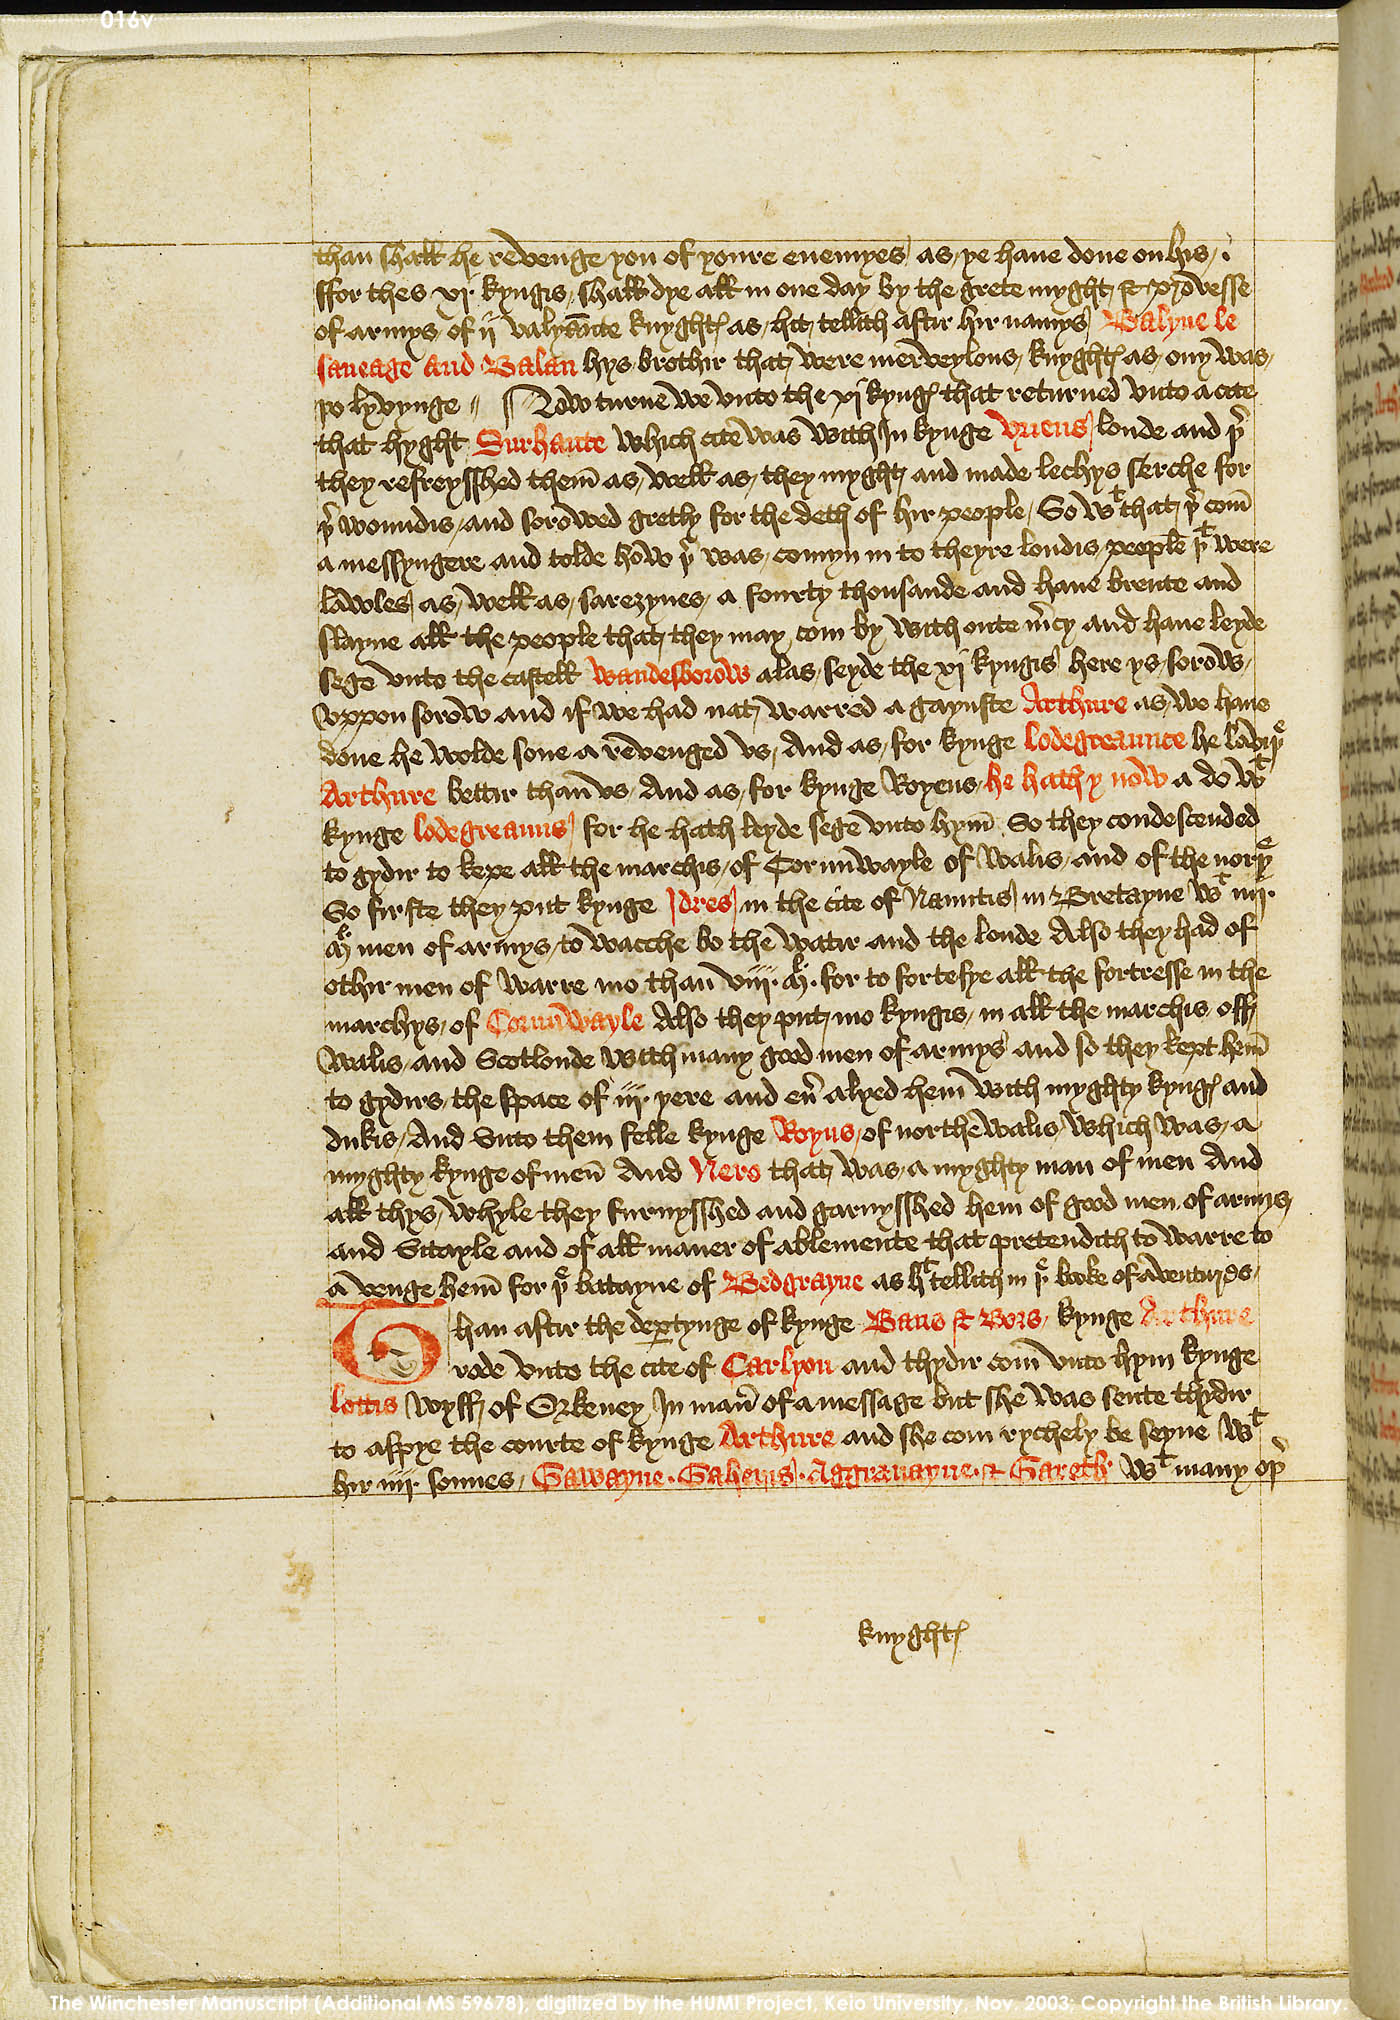 016v
than shall he revenge you of youre enemyes as ye haue done on his .
ffor thes xj kyngis shall dye all in one day by the grete myght & prowesse
of armys of ij valyaūte knyghtꝭ as hit tellith aftir hir namys Balyne le
saueage and Balan hys brothir that were merveylous knyghtꝭ as ony was
þo lyvynge // Now turne we vnto the xj kyngꝭ that returned vnto a cite
that hyght Surhaute which cite was with In kynge Vriens londe and þ̄
they refreysshed them̄ as well as they myght and made lechys serche for
þ̄ woundis and sorowed gretly for the deth of hir people So wᵗ that þ̄ com̄
a messyngere and tolde how þ̄ was comyn in to theyre londis people þᵗ were
lawles as well as sarezynes a fourty thousande and haue brente and
slayne all the people that they may com by with oute m̄cy and haue leyde
sege vnto the castell wandesborow alas seyde the xj kyngis here ys sorow
vppon sorow and if we had nat warred a gaynste Arthure as we haue
done he wolde sone a revenged vs And as for kynge lodegreaunce he lovyþᵉ
Arthure bettir than̄ vs And as for kynge Royens he hath y now a do wᵗ
kynge lodegreauns for he hath leyde sege vnto hym̄ So they condescended
to gydir to kepe all the marchis of Cornn̄wayle of Walis and of the norþᵉ
So firste they put kynge Idres in the cite of Nauntis in Bretayne wᵗ iiij.
Mˡ men of armys to wacche bo the watir and the londe Also they had of
othir men of warre mo than̄ viij. Mˡ. for to fortefye all the fortresse in the
marchys of Cornn̄wayle Also they put mo kyngis in all the marchis off
Walis and Scotlonde with many good men of armys and so they kept hem̄
to gydirs the space of iij. yere and eū alyed hem with myghty kyngꝭ and
dukis And vnto them felle kynge Royns of northe walis which was a
myghty kynge of men̄ And Nero that was a myghty man of men And
all thys whyle they furnysshed and garnysshed hem of good men of armys
and vitayle and of all maner of ablemente that pretendith to warre to
a venge hem̄ for þᵉ batayne of Bedgrayne as hᵗ tellith in þᵉ booke of aventures
Than aftir the deptynge of kynge Bans & Bors kynge Arthure
rode vnto the cite of Carlyon and thydir com̄ vnto hym kynge
lottis wyff of Orkeney In man̄ of a message but she was sente thydir
to aspye the courte of kynge Arthure and she com rychely be seyne wᵗ
hir iiij. sonnes Gawayne . Gaheris . Aggravayne . & Gareth wᵗ many oþ̄
knyghtꝭ
The Winchester Manuscript (Additional MS 59678), digitized by the HUMI Project, Keio University, Nov. 2003; Copyright the British Library.